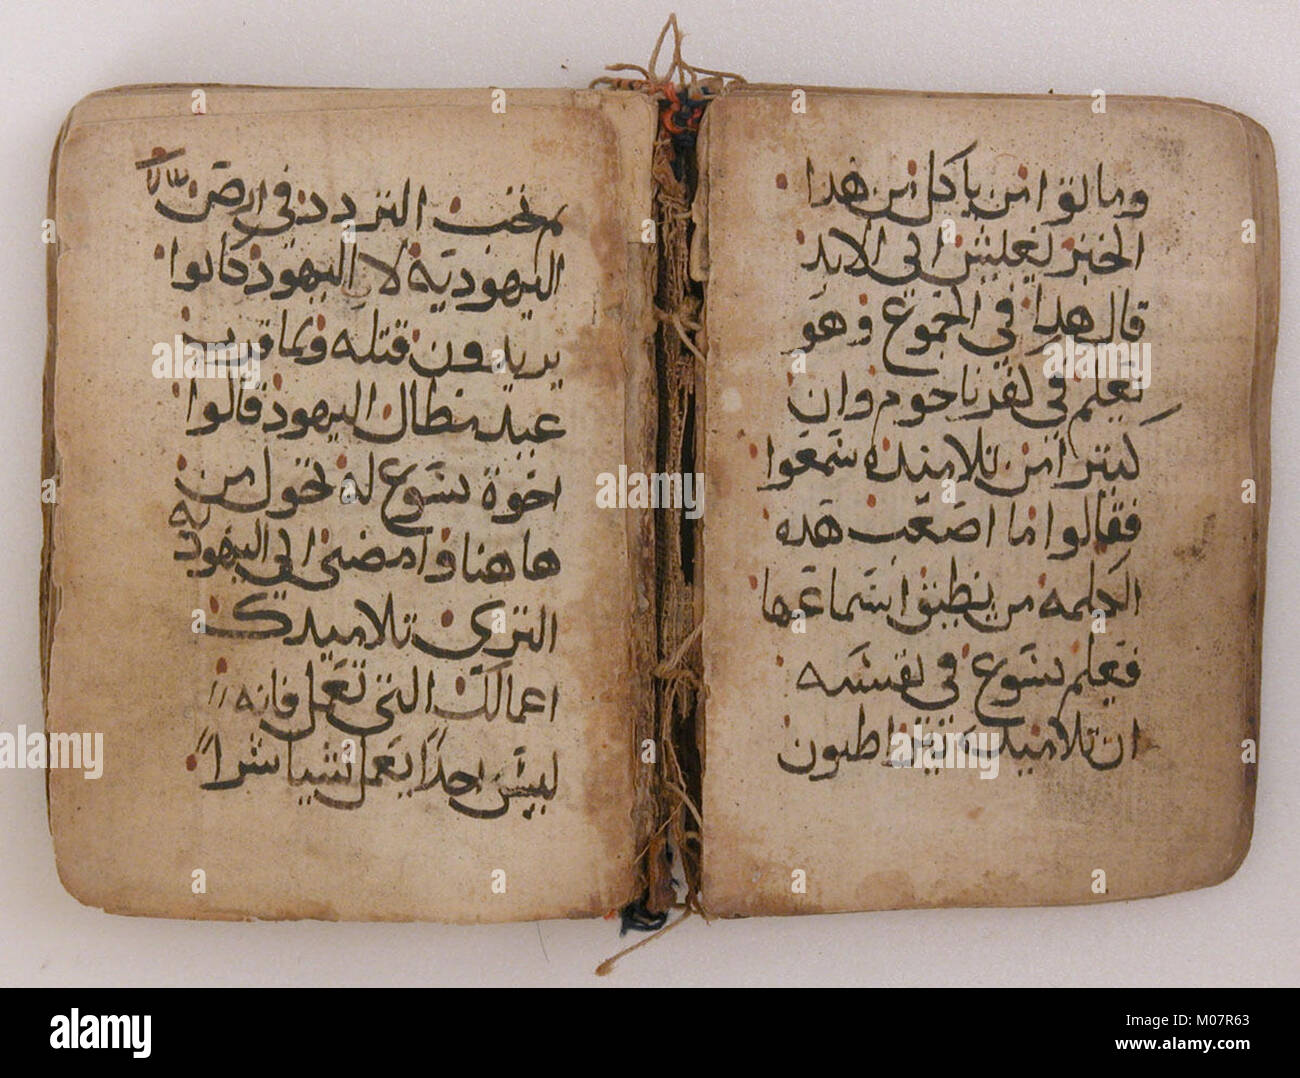 وماتوا من ياكل من هذا
الخبز يعيش الى الابد
قال هذا في الجموع وهو
يعلم في كفرناحوم وان
كثيرا من تلاميذه سمعوا
فقالوا ما اصعب هذه
الكلمه من يطيق استماعها
فعلم يسوع في نفسه
ان تلاميذه يتراطنون
يحب التردد في ارض
اليهوديه لان اليهود كانوا
يريدون قتله قرب
عيد مظال اليهود قالوا
اخوة يسوع له تحول من
هاهنا وامضى الى اليهوديه
لترى تلاميذك
اعمالك التي تعمل فانه
ليس احدًا يعمل شيا سرًا
alamy
alamy
Image ID: M07R63
www.alamy.com